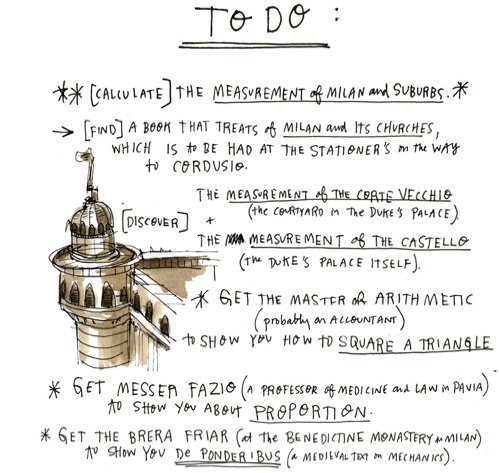 TO DO :
** [CALCULATE] THE MEASUREMENT of MILAN and SUBURBS. *
→ [FIND] A BOOK THAT TREATS of MILAN and ITS CHURCHES,
WHICH IS to BE HAD AT THE STATIONER'S on the WAY
to CORDUSIO.
[DISCOVER] THE MEASUREMENT of THE CORTE VECCHIO
(the COURTYARD in THE DUKE'S PALACE).
+
THE MEASUREMENT of THE CASTELLO
(the DUKE'S PALACE ITSELF).
* GET THE MASTER of ARITHMETIC
(probably an ACCOUNTANT)
to SHOW YOU HOW to SQUARE A TRIANGLE
* GET MESSER FAZIO (A PROFESSOR of MEDICINE and LAW in PAVIA)
to SHOW YOU ABOUT PROPORTION.
* GET THE BRERA FRIAR (at the BENEDICTINE MONASTERY in MILAN)
to SHOW YOU De PONDERIBUS (a MEDIEVAL TEXT on MECHANICS).